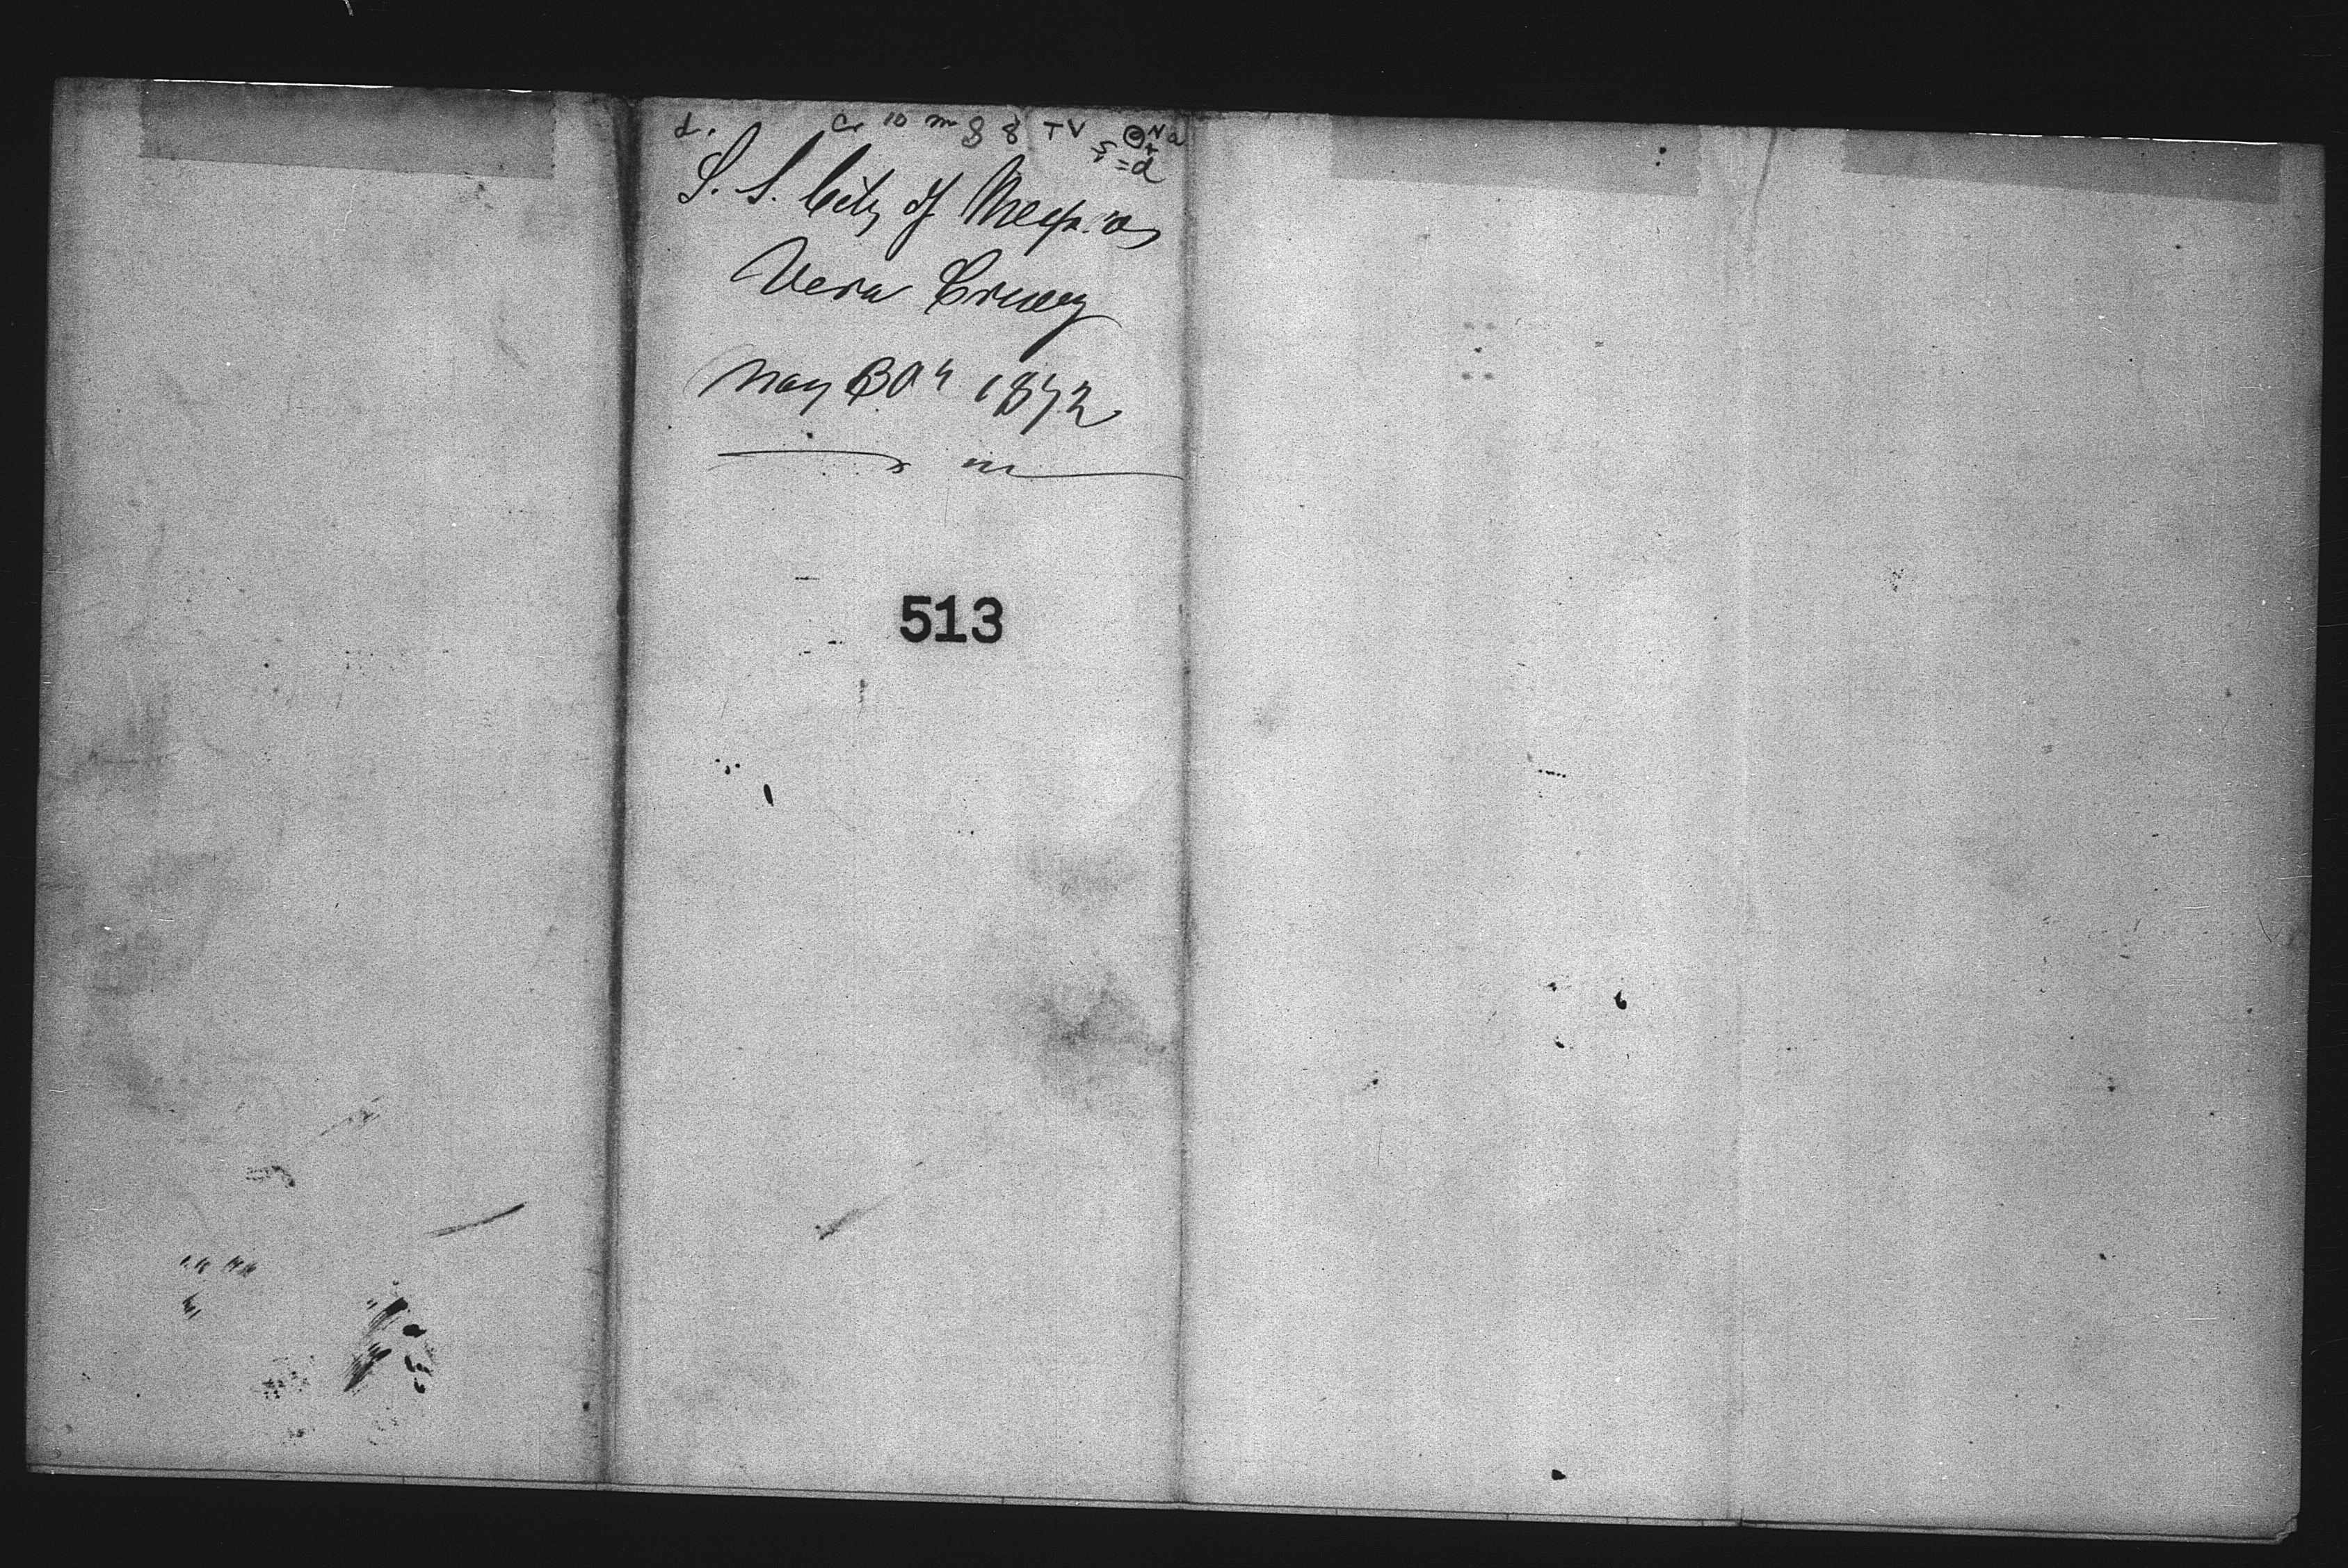 S. S. City of Mexico
Vera Cruz
May 30" 1872
513